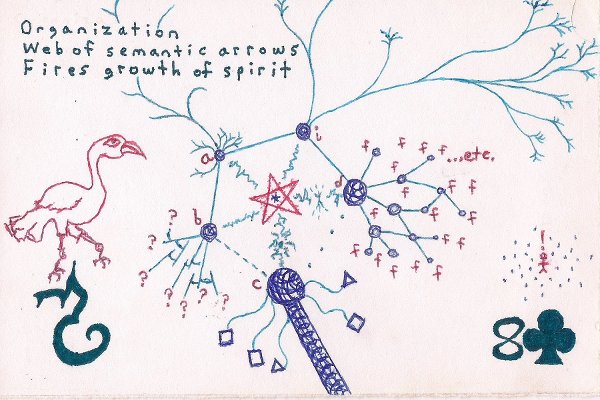 Organization
Web of semantic arrows
Fires growth of spirit
i
a
f f f f ...etc.
d
f f f
f f f
b
?
f f
? ? ? ? ? ?
f f f f
c
!
8